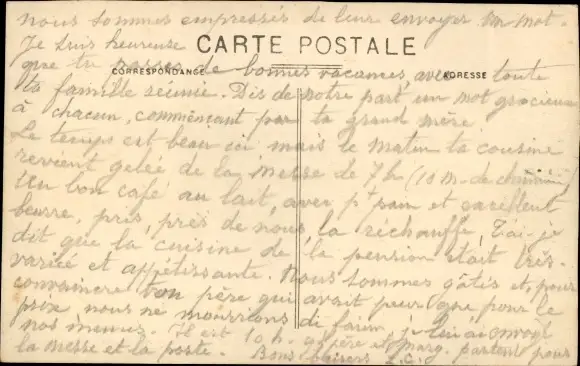 nous sommes empressés de leur envoyer un mot.
Je suis heureuse
CARTE POSTALE
CORRESPONDANCE
ADRESSE
que tu passes de bonnes vacances, avec toute
ta famille réunie. Dis de notre part un mot gracieux
à chacun, commençant par ta grand mère
Le temps est beau ici mais le matin ta cousine
revient gelée de la messe de 7h (10 m. de chemin)
Un bon café au lait, avec pt pain et excellent
beurre, pris, près de nous, la réchauffe, T'ai-je
dit que la cuisine de la pension était très
variée et appétissante. Nous sommes gâtés et, pour
convaincre ton père qui avait peur que pour le
prix nous ne mourrions di faim, je lui ai envoyé
nos menus. Il est 10 h. père et Marg. partent pour
la messe et la poste. Bons baisers L.C.